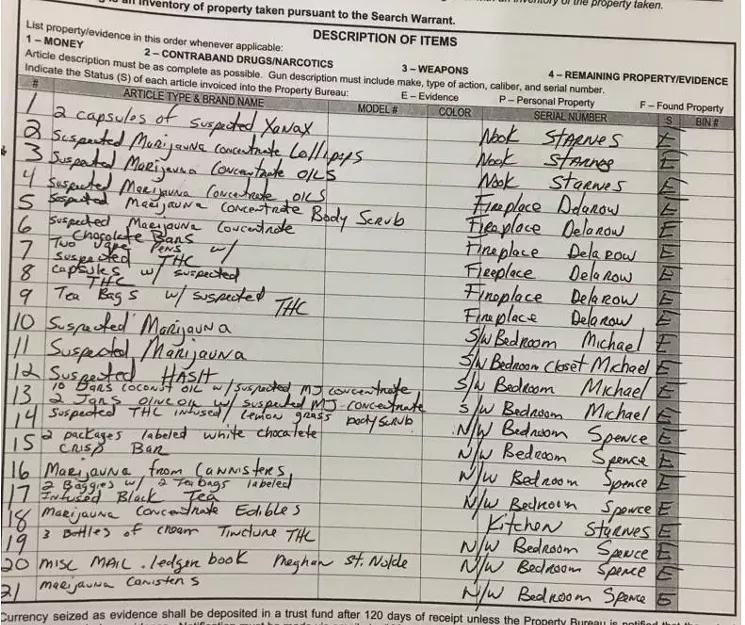 an inventory of property taken pursuant to the Search Warrant.
List property/evidence in this order whenever applicable:
DESCRIPTION OF ITEMS
1 – MONEY 2 – CONTRABAND DRUGS/NARCOTICS 3 – WEAPONS 4 – REMAINING PROPERTY/EVIDENCE
Article description must be as complete as possible. Gun description must include make, type of action, caliber, and serial number.
Indicate the Status (S) of each article invoiced into the Property Bureau: E – Evidence P – Personal Property F – Found Property
# ARTICLE TYPE & BRAND NAME MODEL # COLOR SERIAL NUMBER S BIN #
1 2 capsules of suspected Xanax Nook Starnes E
2 Suspected Marijauna Concentrate Lollipops Nook Starnes E
3 Suspected Marijauna Concentrate OILS Nook Starnes E
4 Suspected Marijauna Concentrate OILS Fireplace Delarow E
5 Suspected Marijauna Concentrate Body Scrub Fireplace Delarow E
6 Suspected Marijauna Concentrate Chocolate Bars Fireplace Delarow E
7 Two Vape Pens w/ suspected THC Fireplace Delarow E
8 capsules w/ suspected THC Fireplace Delarow E
9 Tea Bags w/ suspected THC Fireplace Delarow E
10 Suspected Marijauna S/W Bedroom Michael E
11 Suspected Marijauna S/W Bedroom Closet Michael E
12 Suspected HASH S/W Bedroom Michael E
13 10 Bars coconut oil w/ suspected MJ concentrate
2 Jars olive oil w/ suspected MJ concentrate S/W Bedroom Michael E
14 Suspected THC infused/ Lemon grass body scrub N/W Bedroom Spence E
15 2 packages labeled white chocalete crisp Bar N/W Bedroom Spence E
16 Marijauna from Cannisters N/W Bedroom Spence E
17 2 Baggies w/ 2 Tea bags labeled Infused Black Tea N/W Bedroom Spence E
18 Marijauna Concentrate Edibles Kitchen Starnes E
19 3 Bottles of cream Tincture THC N/W Bedroom Spence E
20 misc MAIL . ledger book Meghan St. Nolde N/W Bedroom Spence E
21 marijauna Canisters N/W Bedroom Spence E
Currency seized as evidence shall be deposited in a trust fund after 120 days of receipt unless the Property Bureau is notified that the